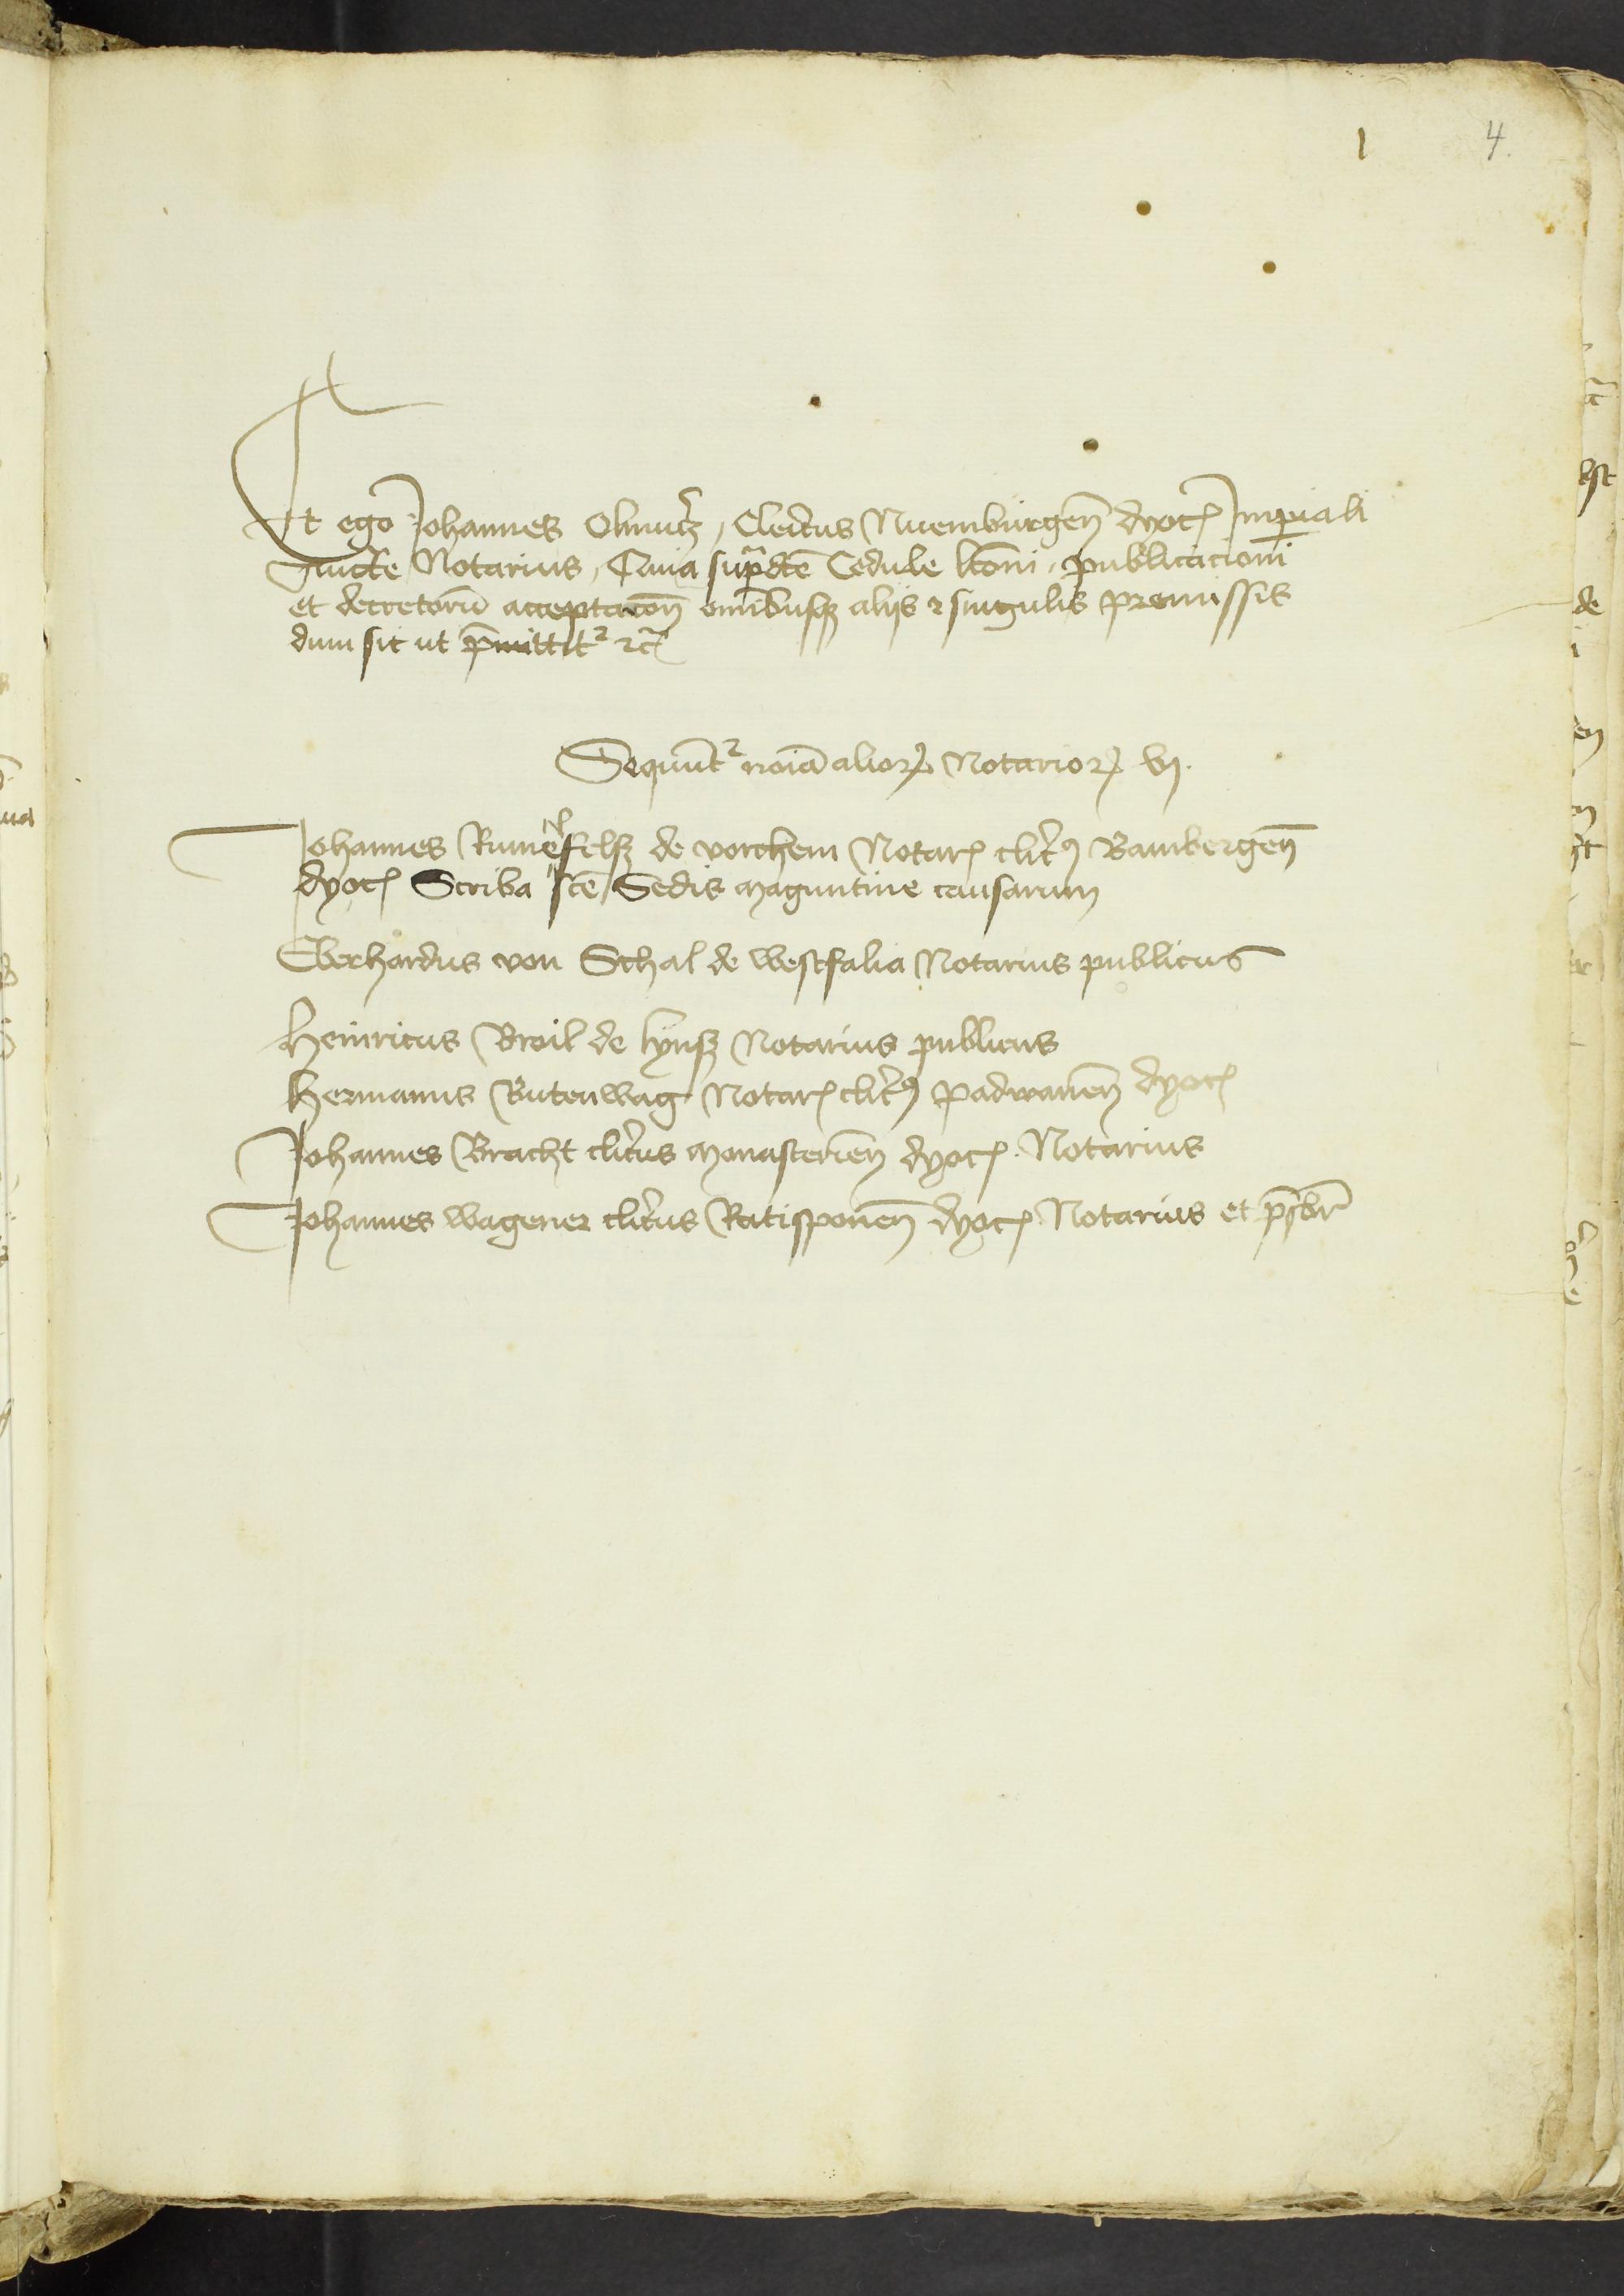 1 4.
Et ego Johannes Olmutz, Clericus Nuemburgen̄ dyoc̄ Imperiali
Auctte Notarius, Quia supradc̄te Cedule lc̄oni, publicacioni
et decretorū acceptacon̄ omībusqȝ alijs ⁊ singulis premissis
dum sic ut p̄mittitr ⁊c̄
Sequūtr noīa alioꝝ Notarioꝝ vj.
Johannes de vorchem Notar̄ clic̄ꝰ Bambergen̄
dyoc̄ Scriba sc̄e Sedis maguntine causarum
Eberhardus von Schal de westfalia Notarius publicus
Heinricus Broil de lynß Notarius publicus
Hermannus Rutenwag Notar̄ clic̄ꝰ paduanen̄ dyoc̄
Johannes Bracht clic̄us monasterien̄ dyoc̄. Notarius
Johannes wagener clic̄us Ratisponen̄ dyoc̄ Notarius et p̄sbr̄